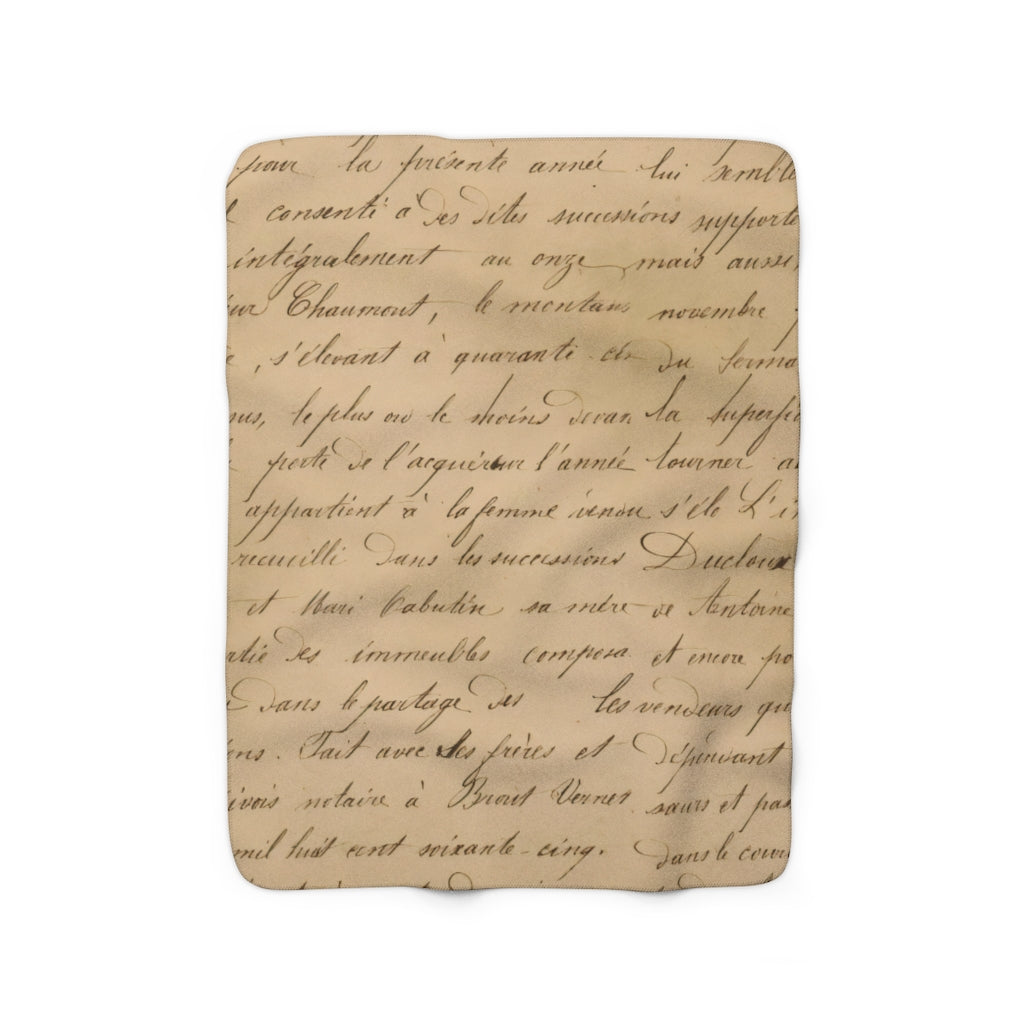 pour la présente année lui semble
consenti à des dites successions supporte
intégralement au onze mais aussi
Chaumont, le montans novembre
, s'élevant à quarante cin du
le plus ou le moins devan la superfic
porte de l'acquéreur l'année tourner a
appartient à la femme venou s'éle L'i
recueilli dans les successions Ducloux
et Mari Cabutin sa mère de Antoine
des immeubles composa et encore po
dans le partage des les vendeurs qu
ons. Fait avec les frères et dépendant
notaire à Brout Vernet sœurs et pas
mil huit cent soixante-cinq. dans le cour